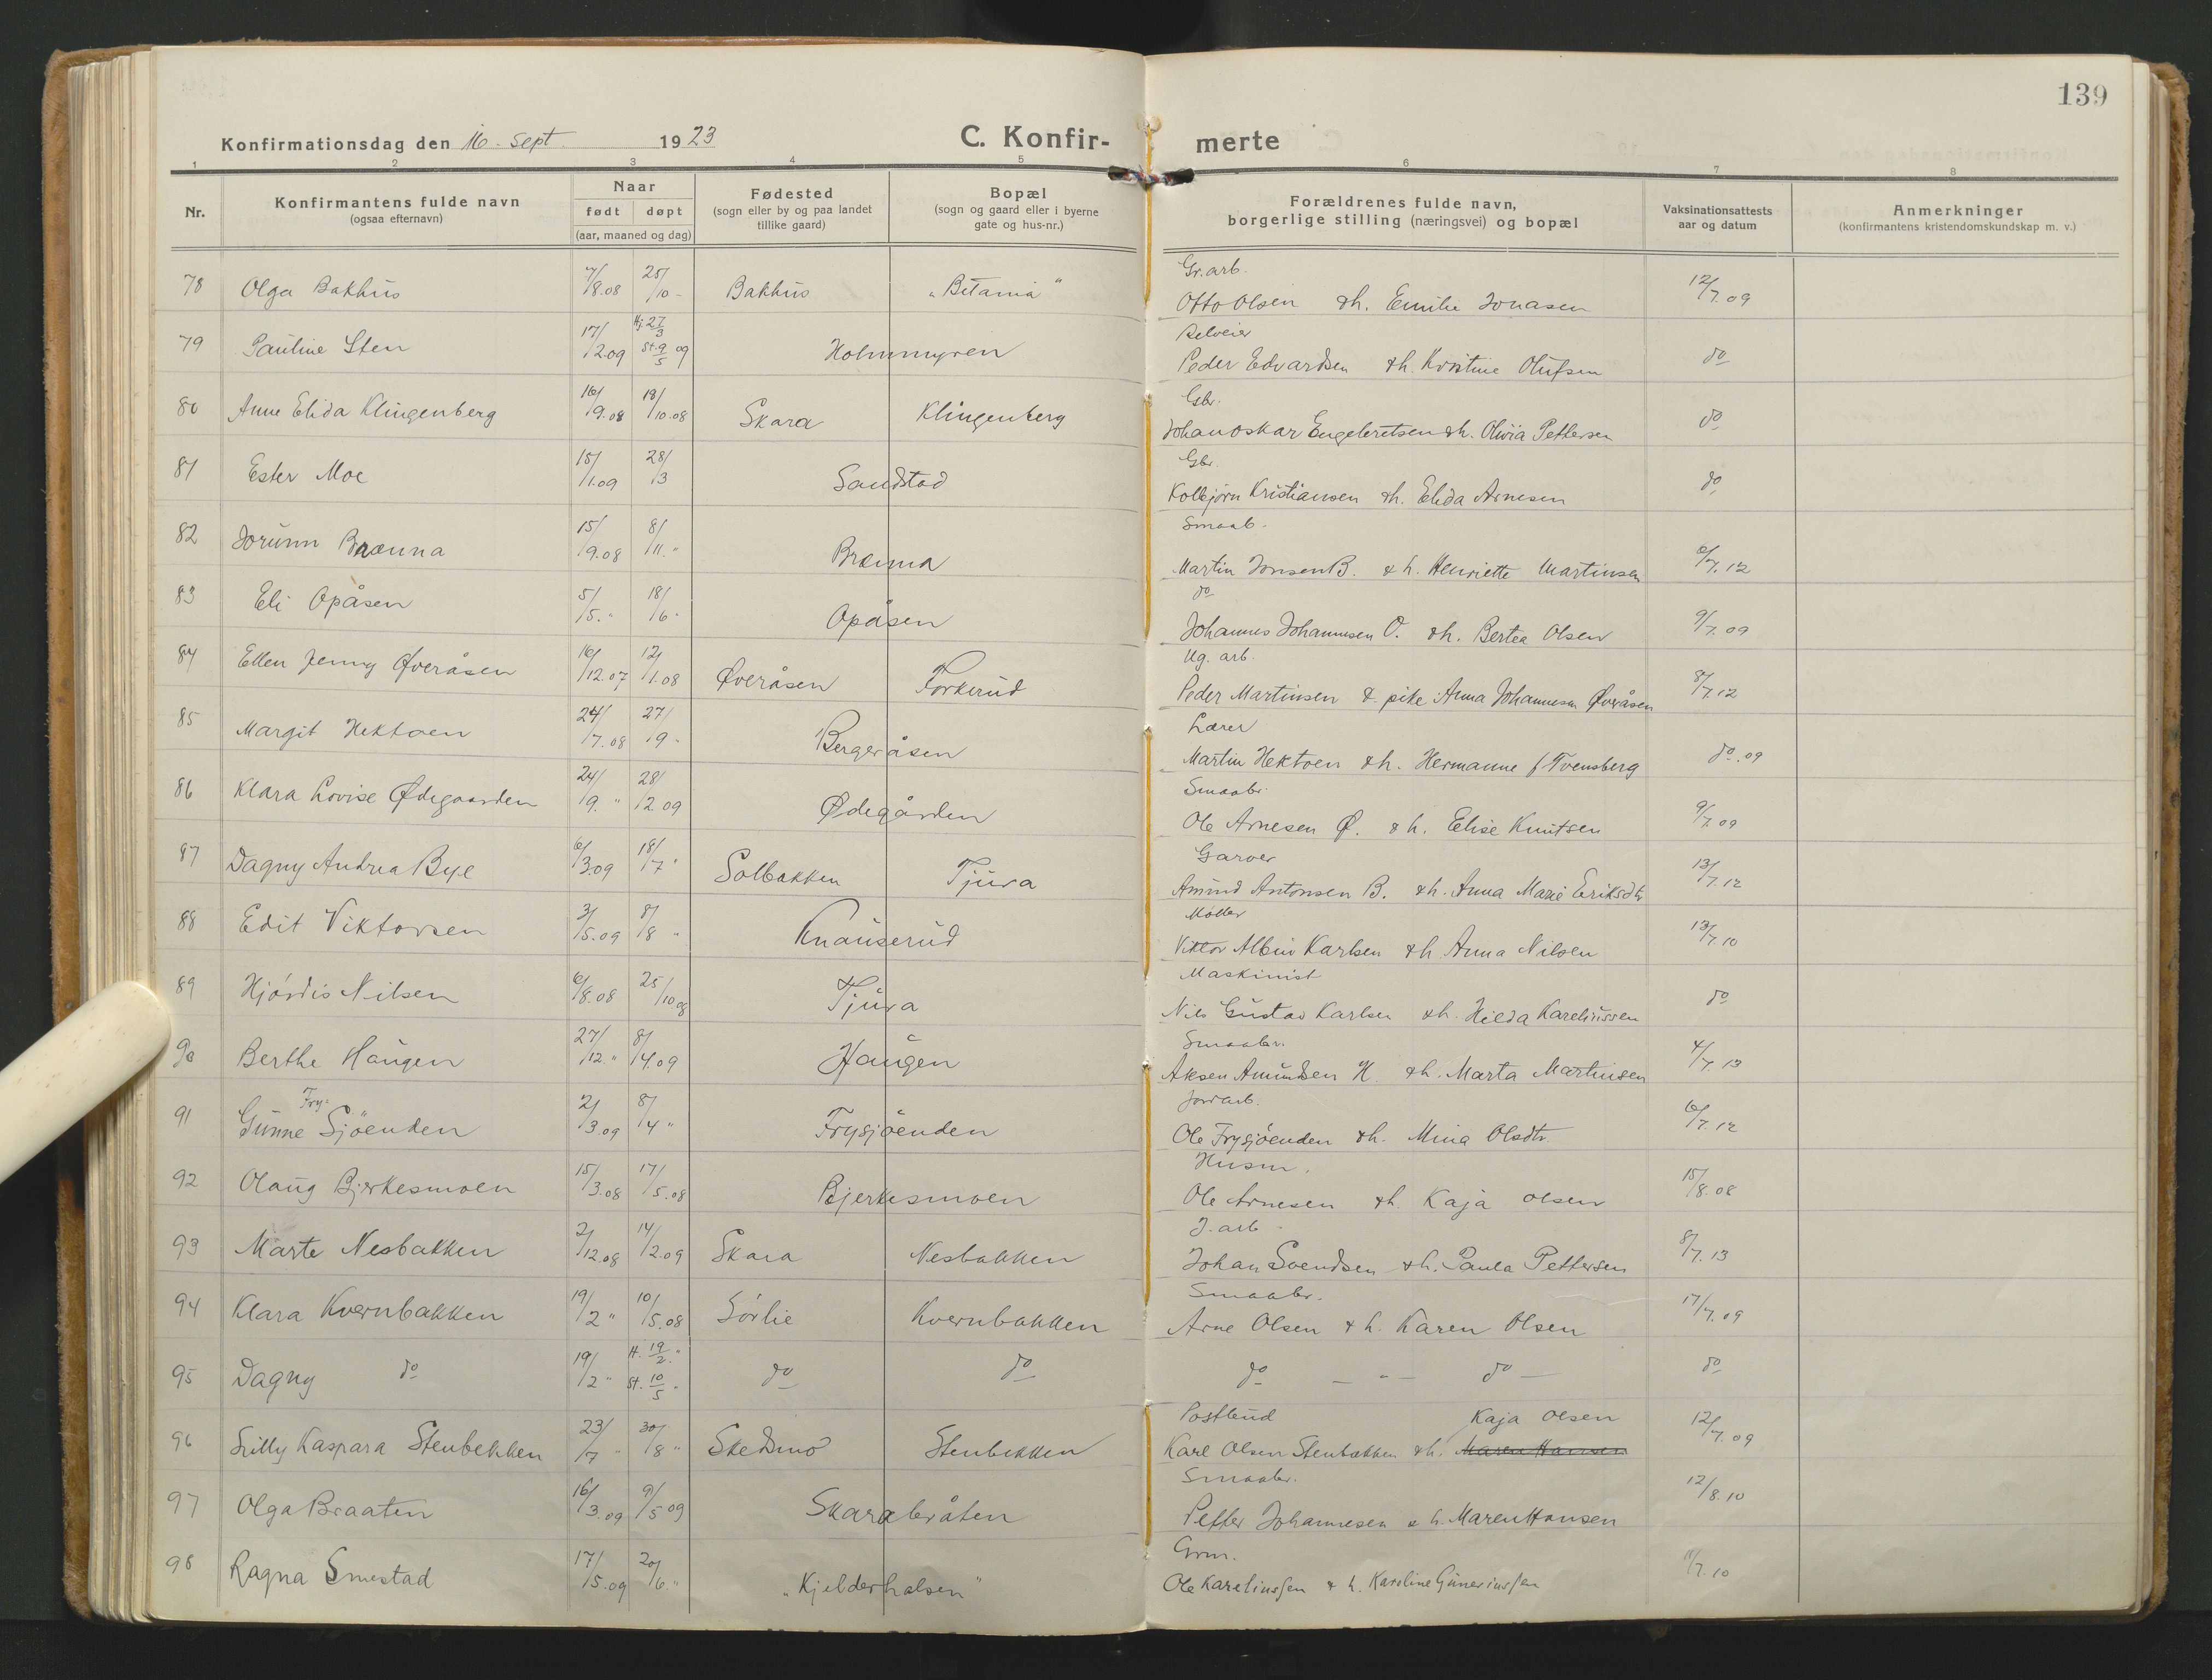 139
Konfirmationsdag den 16. sept. 1923 C. Konfir- merte
1 2 3 4 5 6 7 8
Nr. Konfirmantens fulde navn (ogsaa efternavn) Naar født døpt (aar, maaned og dag) Fødested (sogn eller by og paa landet tillike gaard) Bopæl (sogn og gaard eller i byerne gate og hus-nr.) Forældrenes fulde navn, borgerlige stilling (næringsvei) og bopæl Vaksinationsattests aar og datum Anmerkninger (konfirmantens kristendomskundskap m. v.)
Gr. arb.
78 Olga Bakhus 7/8.08 25/10 - Bakhus "Betania" Otto Olsen & h. Emilie Jonasen 12/7.09
Selveier
79 Pauline Sten 17/2.09 Hj. 27/3 St. 9/5 09 Holmmyren Peder Edvardsen & h. Kristine Olufsen do
Gbr.
80 Anne Elida Klingenberg 16/9.08 18/10.08 Skara Klingenberg Johan Oskar Engebretsen & h. Olivia Pettersen do
Gbr.
81 Ester Moe 15/1.09 28/3 Sandstad Kolbjørn Kristiansen & h. Elida Arnesen do
Smaab.
82 Jorunn Brænna 15/9.08 8/11. " Brænna Martin Jonsen B. & h. Henriette Martinsen 6/7.12
do
83 Eli Opåsen 5/5. " 18/6 " Opåsen Johannes Johannesen O. & h. Bertea Olsen 9/7.09
Ug. arb.
84 Ellen Jenny Øveråsen 16/12.07 12/1.08 Øveråsen Forkerud Peder Martinsen & pike Anna Johannesen Øveråsen 8/7.12
Lærer
85 Margit Hektoen 24/7.08 27/9 - Bergeråsen Martin Hektoen & h. Hermanne f Tvensberg do.09
Smaabr.
86 Klara Lovise Ødegaarden 24/9. " 28/12 09 Ødegården Ole Arnesen Ø. & h. Elise Knutsen 9/7.09
Garver
87 Dagny Andrea Bye 6/3.09 18/7 " Solbakken Tjura Amund Antonsen B. & h. Anna Marie Eriksdtr 13/7.12
Møller
88 Edit Viktorsen 3/5.09 8/8 " Knauserud Viktor Albin Karlsen & h Anna Nilsen 13/7.10
Maskinist
89 Hjørdis Nilsen 6/8.08 25/10 08 Tjura Nils Gustav Karlsen & h. Hilda Kareliussen do
Smaabr.
90 Berthe Haugen 27/12. " 8/4.09 Haugen Aksen Amundsen H. & h. Marta Martinsen 4/7.13
Fry- Jordarb.
91 Gunne Sjöenden 2/3.09 8/4 " Frysjöenden Ole Frysjöenden & h. Mina Olsdtr. 6/7.12
Husm.
92 Olaug Bjerkesmoen 15/3.08 17/5.08 Bjerkesmoen Ole Arnesen & h. Kaja Olsen 15/8.08
J. arb.
93 Marte Nesbakken 2/12.08 14/2.09 Skara Nesbakken Johan Svendsen & h. Paula Pettersen 8/7.13
Smaabr.
94 Klara Kvernbakken 19/2 " 10/5.08 Sörlie Kvernbakken Arne Olsen & h. Karen Olsen 17/7.09
95 Dagny do 19/2 " H. 19/2. " St. 10/5 " do do do — " — do — do
Postbud Kaja Olsen
96 Lilly Kaspara Stenbekken 23/7 " 30/8 " Skedsmo Stenbekken Karl Olsen Stenbækken & h. Maren Hansen 12/7.09
Smaabr.
97 Olga Braaten 16/3.09 9/5 09 Skarabråten Petter Johannesen & h. Maren Hansen 12/8.10
Grm.
98 Ragna Smestad 17/5.09 20/6. " "Kjelderhalsen" Ole Kareliussen & h. Karoline Guneriussen 11/7.10